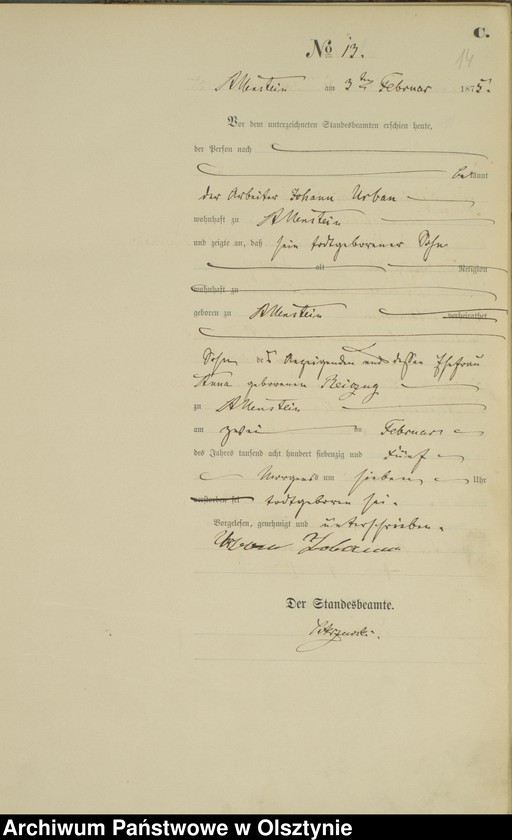 C.
No 13.
14
Allenstein am 3ten Februar 1875.
Vor dem unterzeichneten Standesbeamten erschien heute,
der Person nach
bekannt
der Arbeiter Johann Urban
wohnhaft zu Allenstein
und zeigte an, daß sein todtgeborener Sohn
alt Religion
wohnhaft zu
geboren zu Allenstein verheirathet
Sohn des Anzeigenden und dessen Ehefrau
Anna geborenen
zu Allenstein
am zwei ten Februar
des Jahres tausend acht hundert siebenzig und fünf
Morgens um sieben Uhr
verstorben sei todtgeboren sei.
Vorgelesen, genehmigt und unterschrieben.
Urban Johann
Der Standesbeamte.
Archiwum Państwowe w Olsztynie